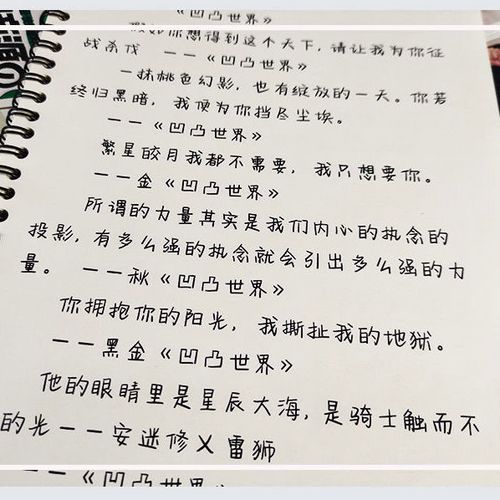 ——《凹凸世界》
假如你想得到这个天下，请让我为你征
战杀伐 ——《凹凸世界》
一抹桃色幻影，也有绽放的一天。你若
终归黑暗，我便为你挡尽尘埃。
——《凹凸世界》
繁星皎月我都不需要，我只想要你。
——金《凹凸世界》
所谓的力量其实是我们内心的执念的
投影，有多么强的执念就会引出多么强的力
量。 ——秋《凹凸世界》
你拥抱你的阳光，我撕扯我的地狱。
——黑金《凹凸世界》
他的眼睛里是星辰大海，是骑士触而不
的光——安迷修乂雷狮
——《凹凸世界》